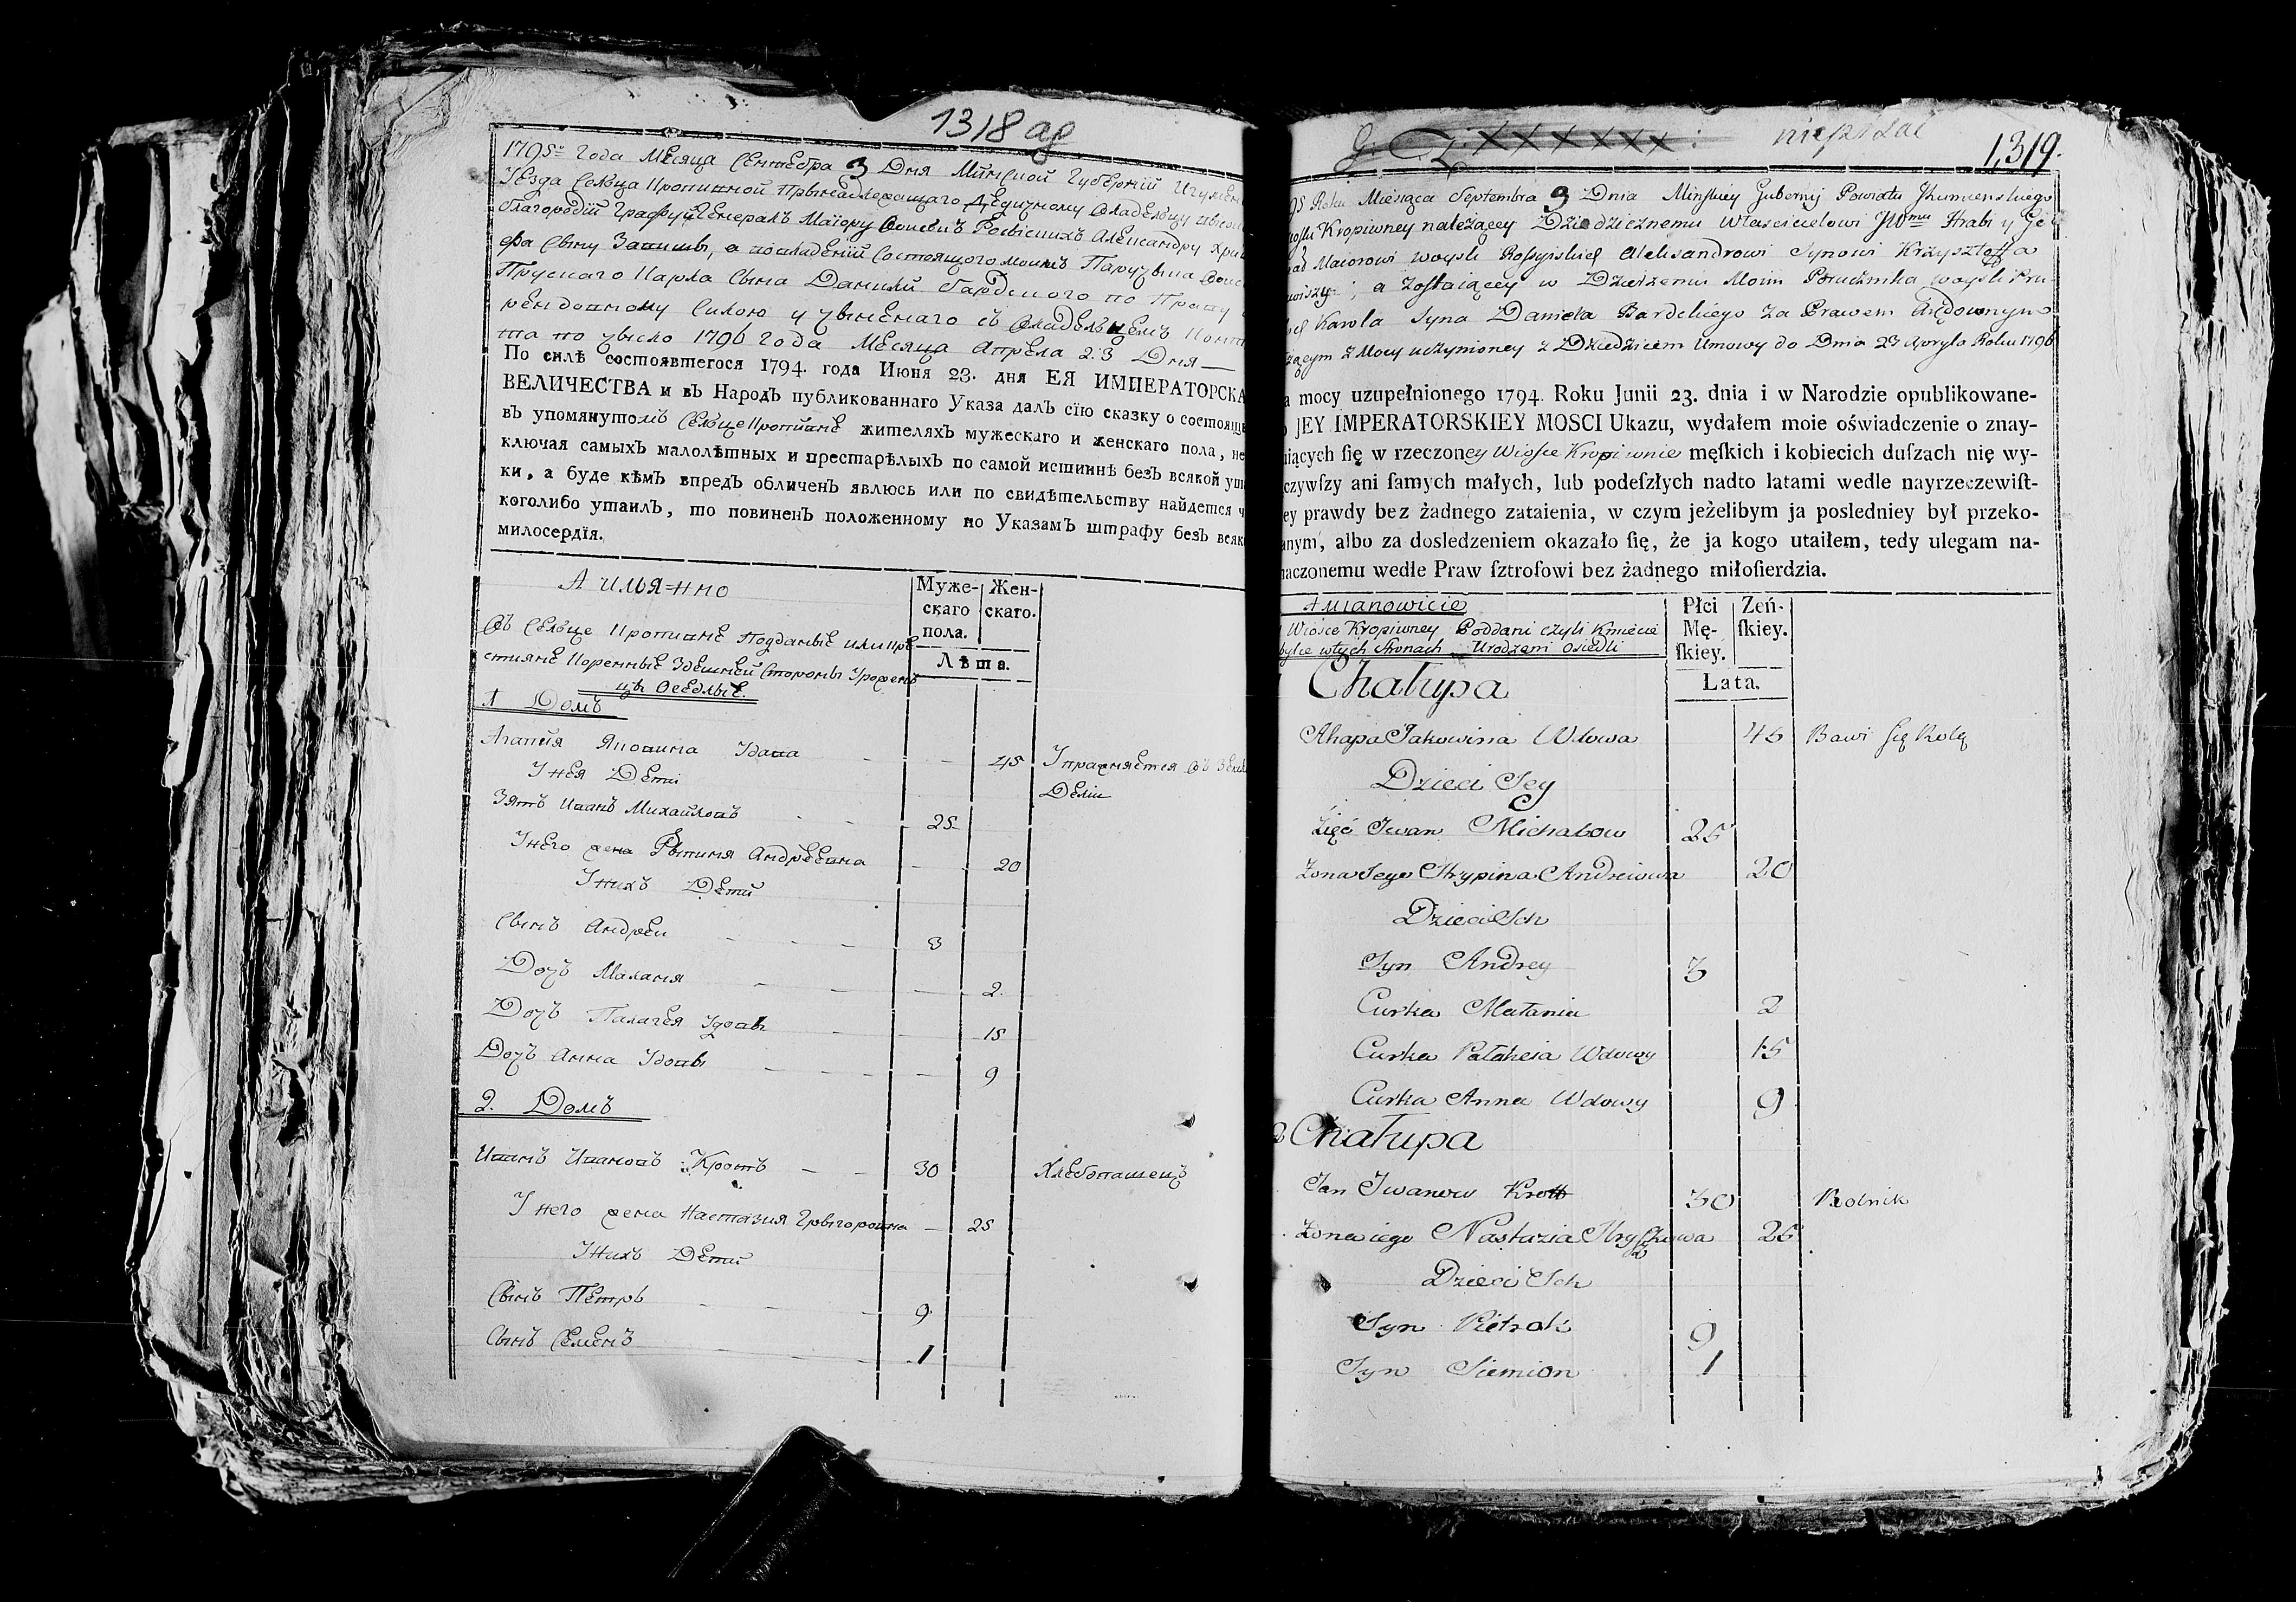 1318 ад
1795го Года Месяца Сентебра 3 Дня Минской Губернiй
Уезда Селца Кропивной
благородiй Графу и Генералъ Маiору Александру
сына
Прускаго Карла Сына Данили Бардского по Праву
рендовному Силою
та по число 1796 Года Месяца Апреля 23 Дня
По силѣ состоявшегося 1794. года Июня 23. дня ЕЯ ИМПЕРАТОРСКА
ВЕЛИЧЕСТВА и въ Народъ публикованнаго Указа далъ сїю сказку о состояще
въ упомянутомъ Селце Кропивне жителяхъ мужескаго и женскаго пола, не
ключая самыхъ малолѣтныхъ и престарѣлыхъ по самой истиннѣ безъ всякой ута
ки, а буде кѣмъ впредъ обличенъ явлюсь или по свидѣтельству найдется ч
коголибо утаилъ, то повиненъ положенному по Указамъ штрафу безъ всяк
милосердїя.
А имЯнно
Муже-
скаго
пола.
Жен-
скаго.
Лѣта.
Въ Селце Кропивне Подданые или кре
стияне Коренные Здешней Стороны Урожен
цы Оседлые.
1 Домъ
Агапия Яковина Удова 45 Упражняется въ
Унея Дети Делiи
Зять Иванъ Михайловъ 25
Унего жена Андреевна 20
Унихъ Дети
Сынъ Андреи 3
Дочъ Малания 2.
Дочъ Палагея Удовы 15
Дочъ Анна Удовы 9
2. Домъ
Иванъ Ивановъ Кротъ 30 Хлебопашецъ
Унего жена Настазия Грыгоровна 25
Унихъ Дети
Сынъ Петръ 9
Сынъ Семенъ 1
1319.
95 Roku Miesiąca Septembra 3 Dnia Minskiey Gubernij Powiatu Jhumenskiego
Kropiwney należącey Dziedzicznemu Właścicielowi JWmu Hrabi y Ge
Maiorowi woysk Rossyiskich Alexandrowi Synowi Krzysztoffa
; a zostaiącey w Dzierżeniu Moim Porucznika woysk Pru
Karola Syna Daniela Bardskiego za Prawem Arędownym
z Mocy uczynioney z Dziedzicem Umowy do Dnia 23 Apryla Roku 1796
a mocy uzupełnionego 1794. Roku Junii 23. dnia i w Narodzie opublikowane-
JEY IMPERATORSKIEY MOSCI Ukazu, wydałem moie oświadczenie o znay-
uiących ſię w rzeczoney Wiosce Kropiwnie męſkich i kobiecich duſzach nię wy-
czywſzy ani ſamych małych, lub podeſzłych nadto latami wedle nayrzeczewiſt-
ey prawdy bez żadnego zataienia, w czym jeżelibym ja posledniey był przeko-
anym, albo za dosledzeniem okazało ſię, że ja kogo utaiłem, tedy ulegam na-
naczonemu wedle Praw ſztrofowi bez żadnego miłoſierdzia.
A Mianowicie
Wiosce Kropiwney Poddani czyli Kmiecie
wtych Stronach Urodzeni Osiedli
Płci
Mę-
ſkiey.
Zeń-
ſkiey.
Lata.
Chałupa
Ahapa Jakowina Wdowa 45 Bawi się Rolą
Dzieci Jey
Zięć Jwan Michałow 25
Zona Jego Hrypina Andreiowa 20
Dzieci Jch
Syn Andrey 3
Curka Małania 2
Curka Pałaheia Wdowy 15
Curka Anna Wdowy 9
2 Chałupa
Jan Jwanow Krott 30 Rolnik
Zona iego Nastazia 25
Dzieci Jch
Syn Pietrok 9
Syn Siemion 1